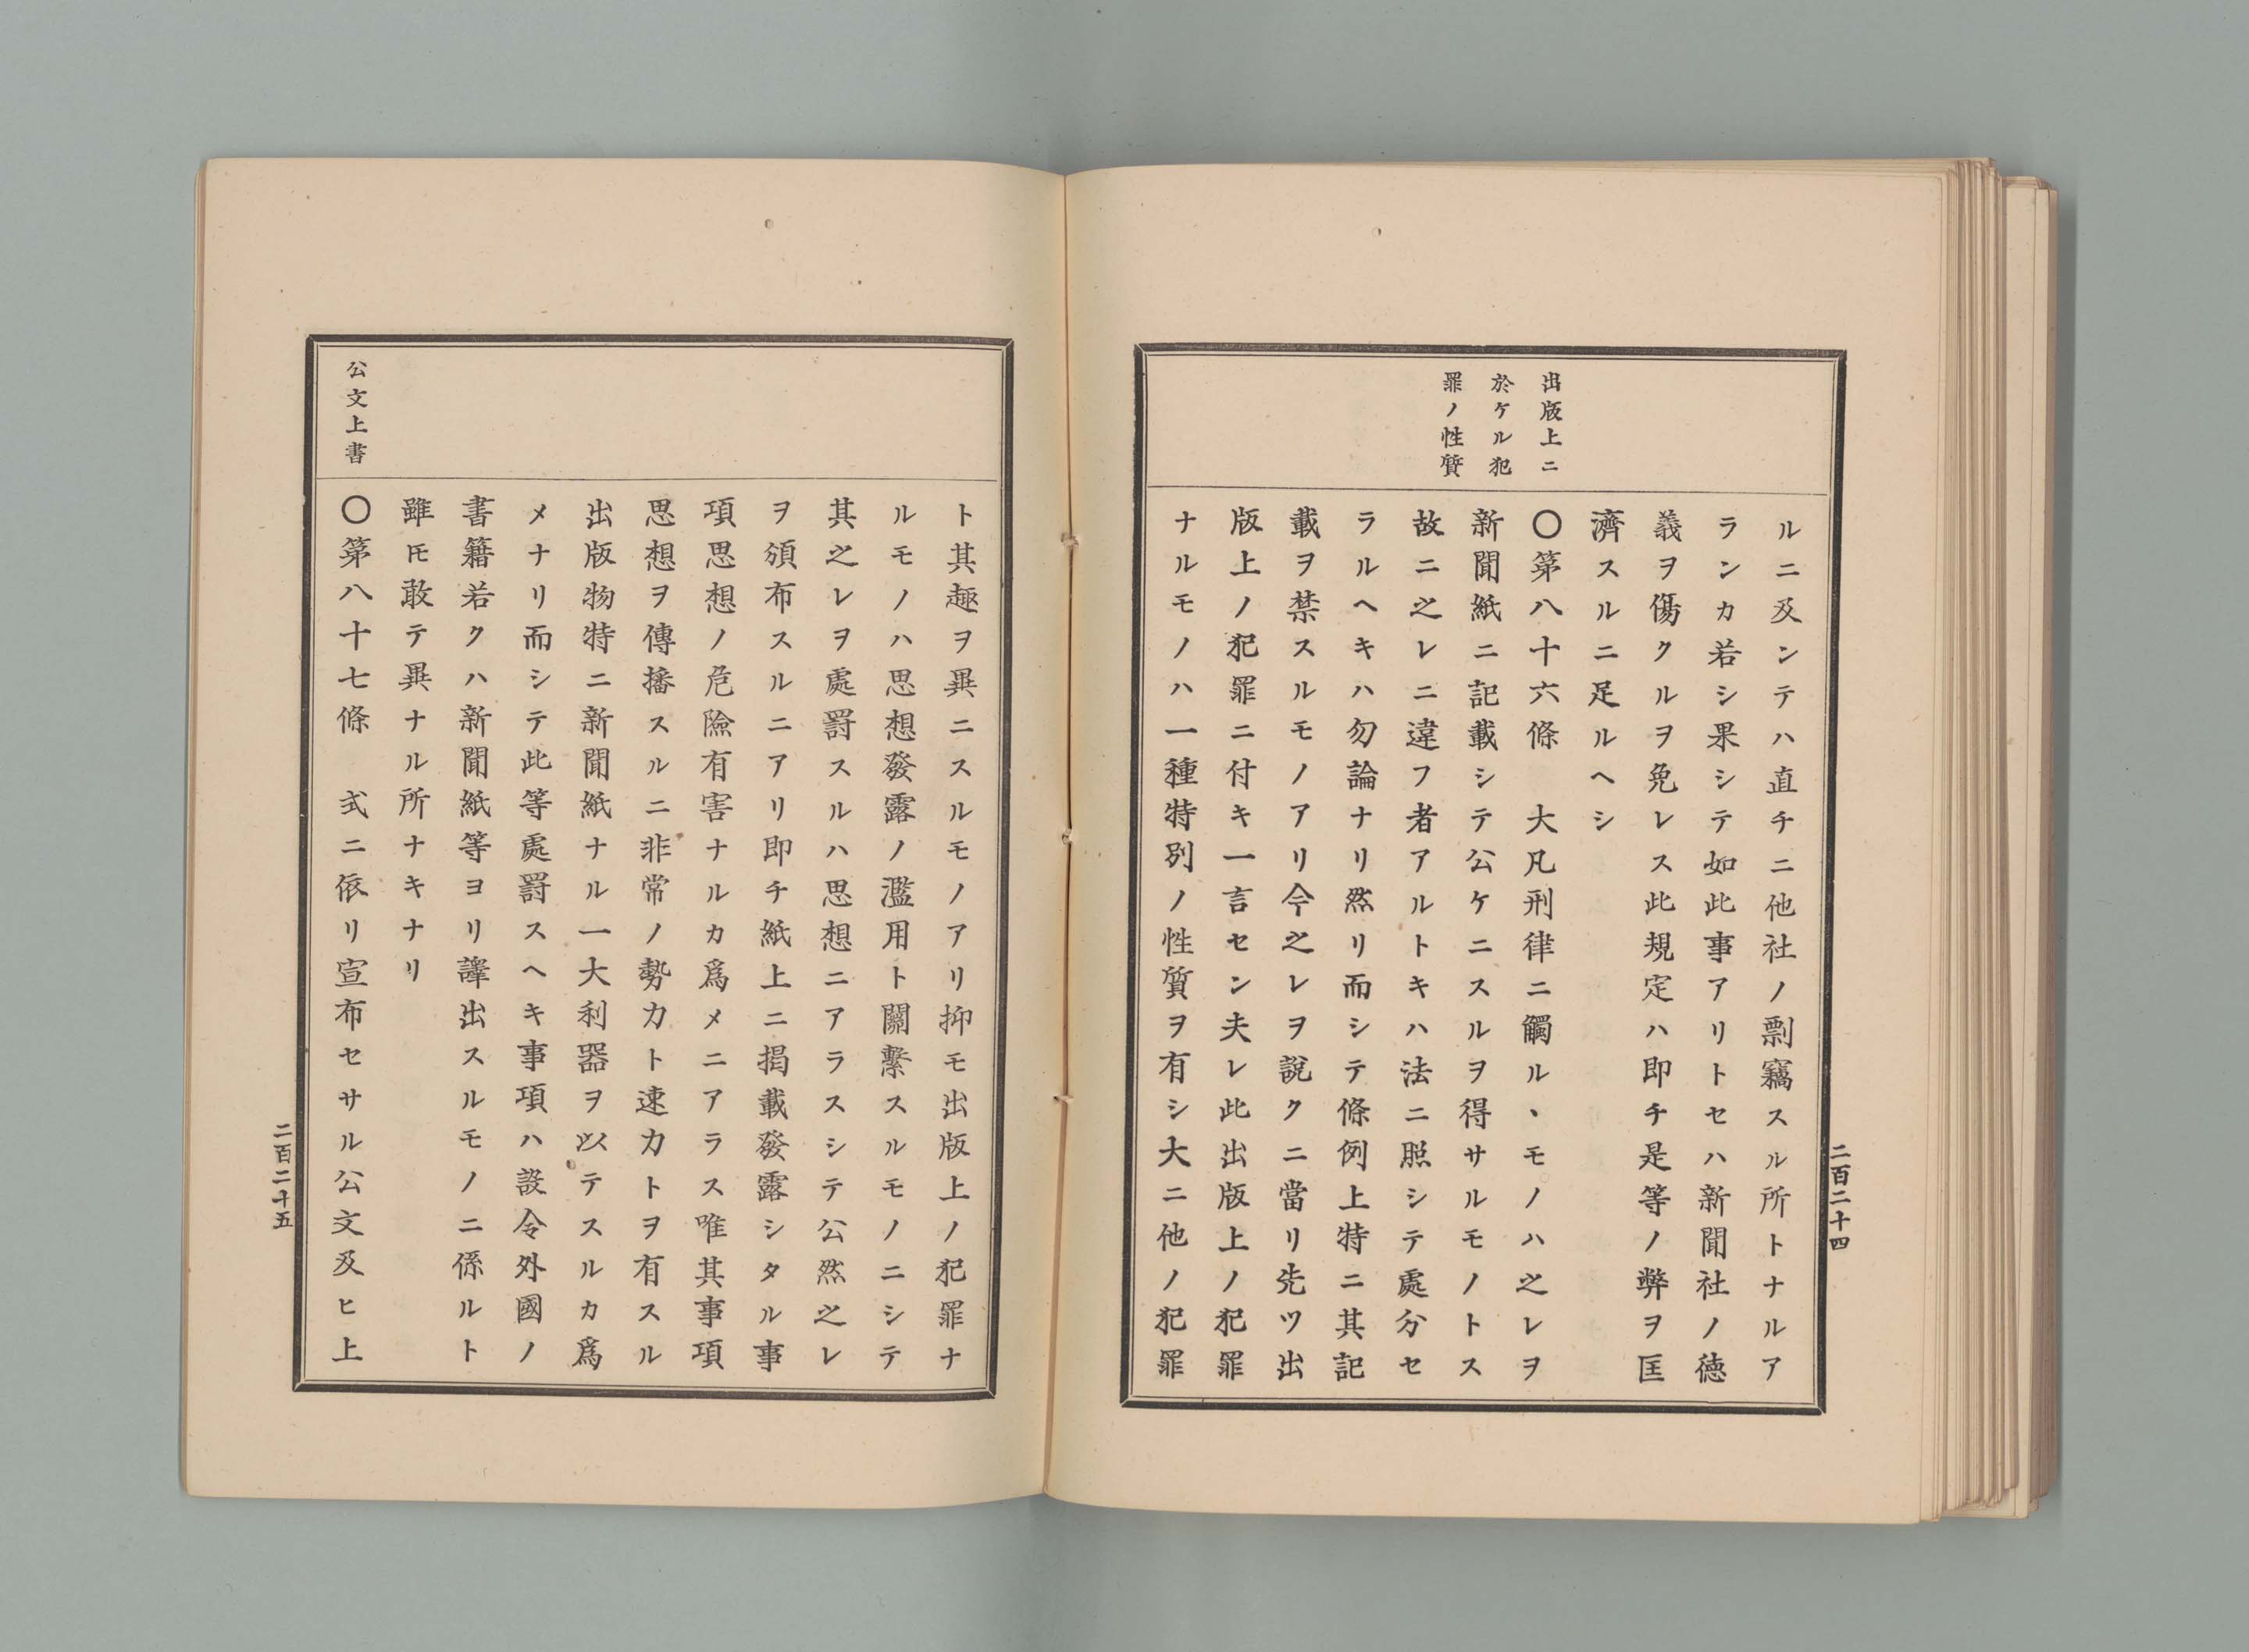 二百二十四
出版上ニ
於ケル犯
罪ノ性質
ルニ及ンテハ直チニ他社ノ剽竊スル所トナルア
ランカ若シ果シテ如此事アリトセハ新聞社ノ德
義ヲ傷クルヲ免レス此規定ハ即チ是等ノ弊ヲ匡
濟スルニ足ルヘシ
〇第八十六條　大凡刑律ニ觸ルヽモノハ之レヲ
新聞紙ニ記載シテ公ケニスルヲ得サルモノトス
故ニ之レニ違フ者アルトキハ法ニ照シテ處分セ
ラルヘキハ勿論ナリ然リ而シテ條例上特ニ其記
載ヲ禁スルモノアリ今之レヲ說クニ當リ先ツ出
版上ノ犯罪ニ付キ一言セン夫レ此出版上ノ犯罪
ナルモノハ一種特別ノ性質ヲ有シ大ニ他ノ犯罪
ト其趣ヲ異ニスルモノアリ抑モ出版上ノ犯罪ナ
ルモノハ思想發露ノ濫用ト關繫スルモノニシテ
其之レヲ處罸スルハ思想ニアラスシテ公然之レ
ヲ頒布スルニアリ即チ紙上ニ揭載發露シタル事
項思想ノ危險有害ナルカ爲メニアラス唯其事項
思想ヲ傳播スルニ非常ノ勢力ト速力トヲ有スル
出版物特ニ新聞紙ナル一大利器ヲ以テスルカ爲
メナリ而シテ此等處罸スヘキ事項ハ設令外國ノ
書籍若クハ新聞紙等ヨリ譯出スルモノニ係ルト
雖𪜈敢テ異ナル所ナキナリ
公文上書
〇第八十七條　式ニ依リ宣布セサル公文及ヒ上
二百二十五